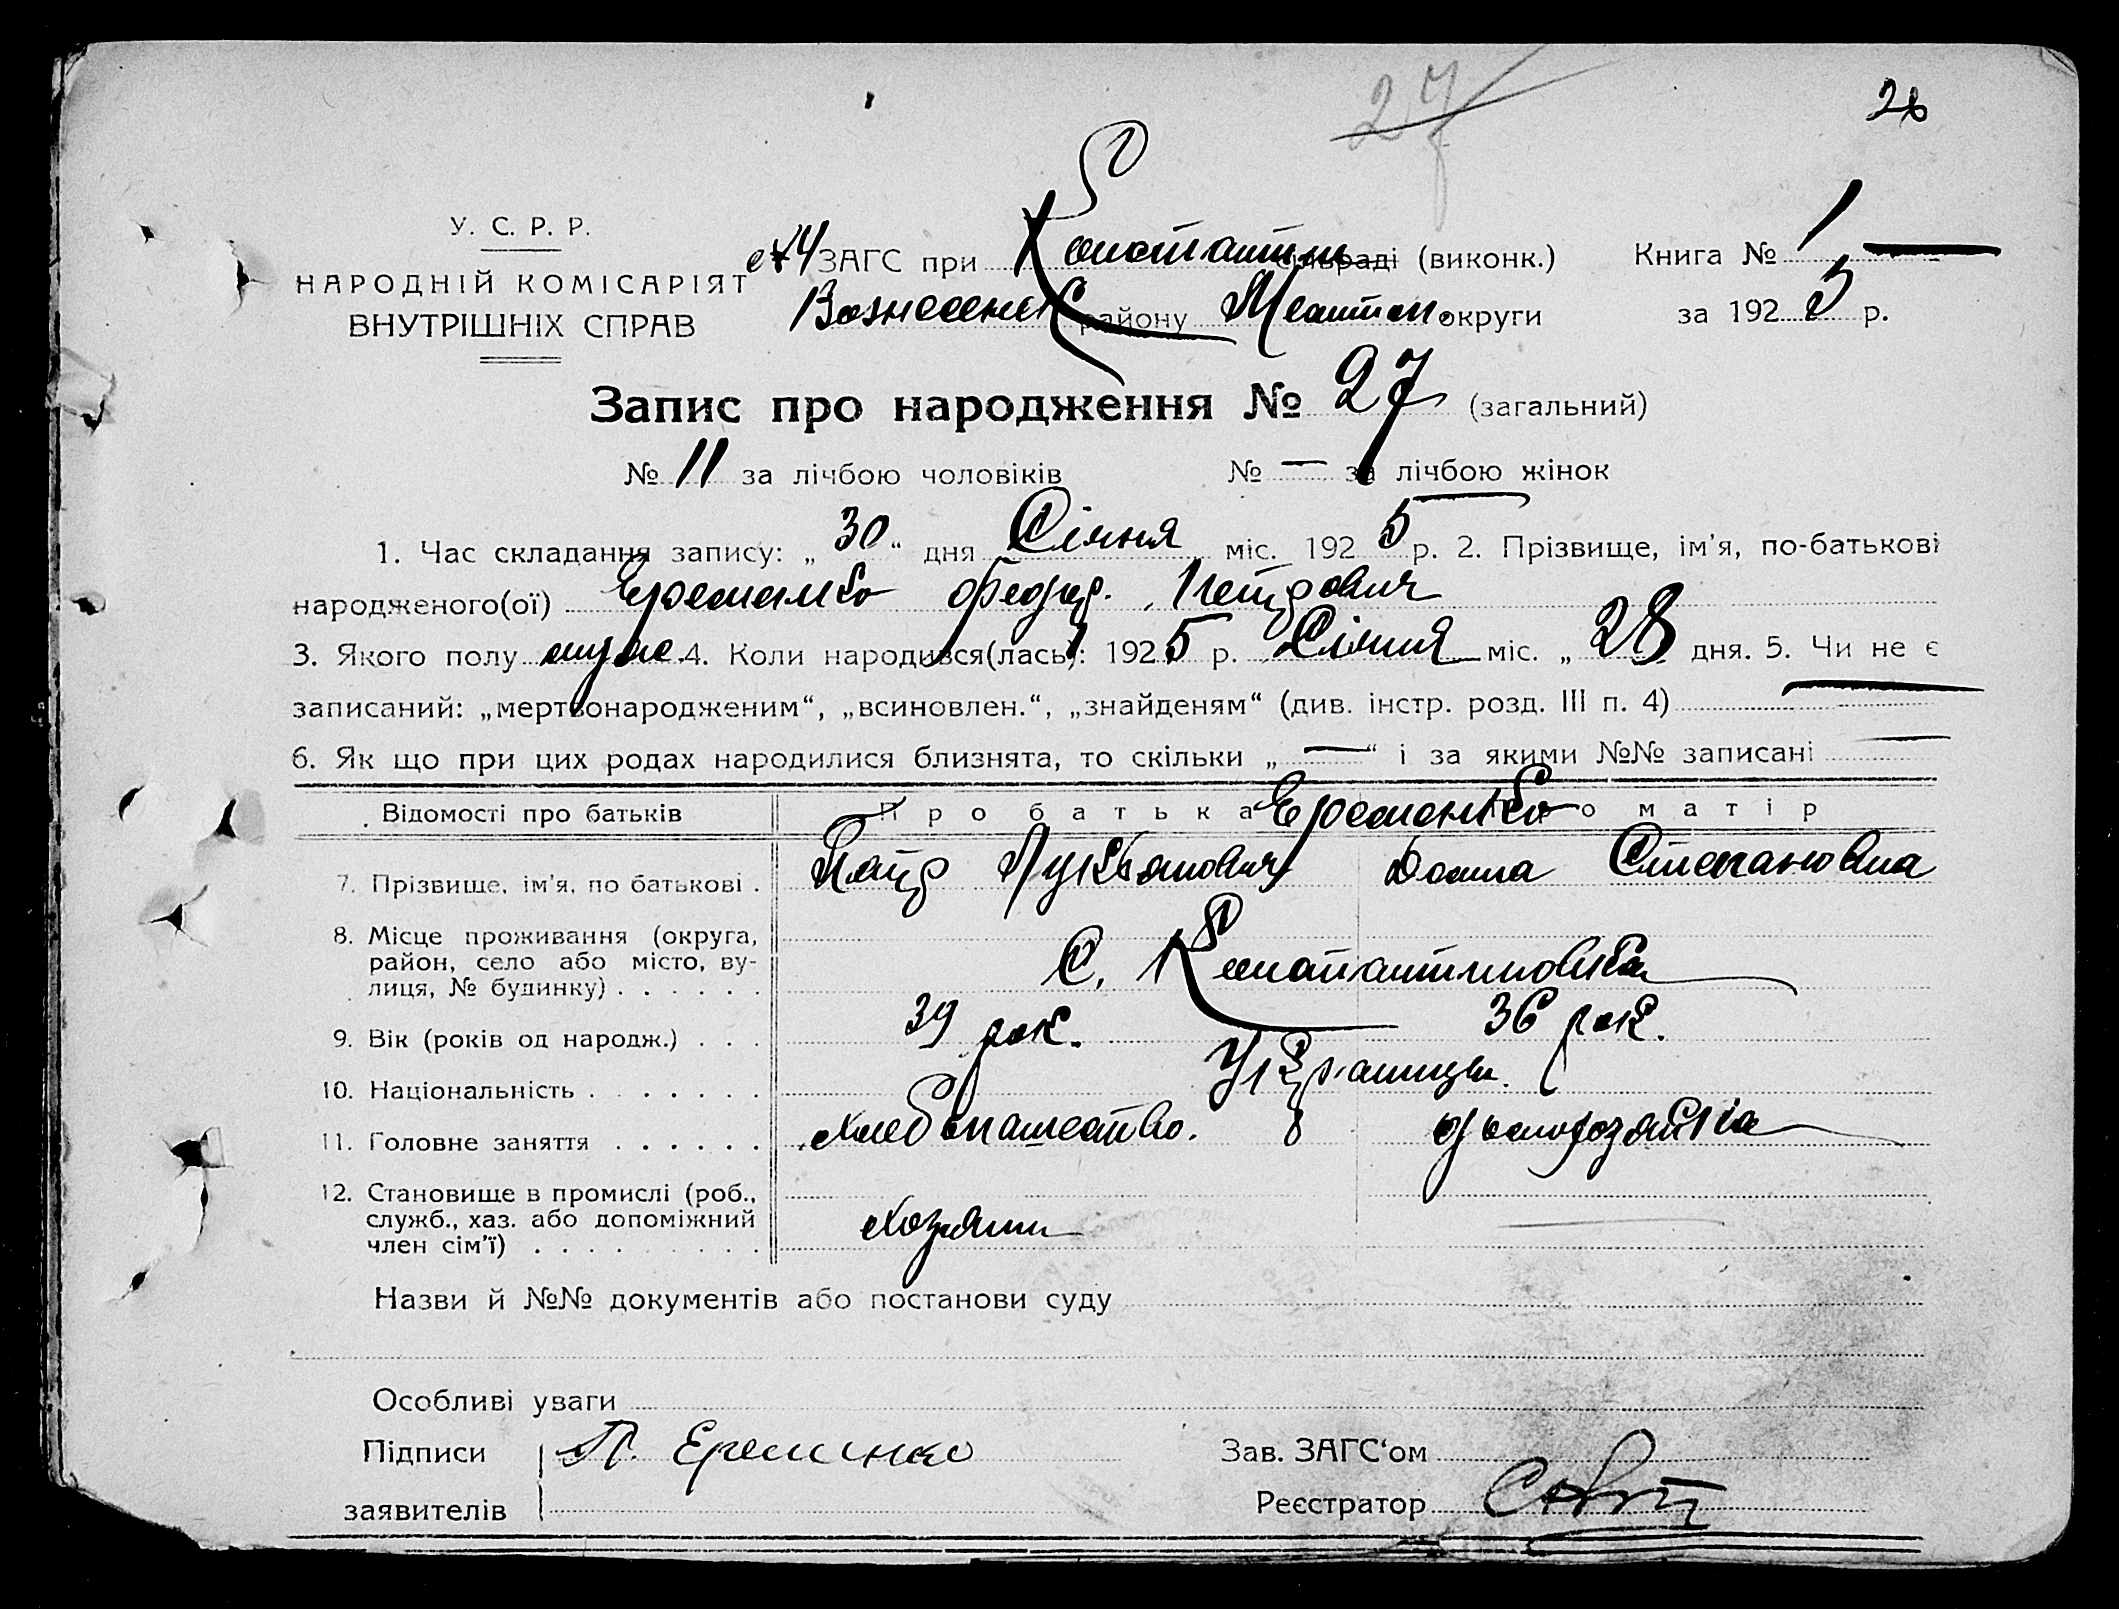 27
26
У. С. Р. Р.
НАРОДНІЙ КОМІСАРІЯТ
ВНУТРІШНІХ СПРАВ
ЗАГС при Константин сільраді (виконк.) Книга № 1 —
Вознесенск району Мелитоп. округи за 1925 р.
Запис про народження № 27 (загальний)
№ 11 за лічбою чоловіків № — за лічбою жінок
1. Час складання запису: „30“ дня Січня міс. 1925 р. 2. Прізвище, ім'я, по-батькові
народженого(ої) Еременко Федор. Петрович
3. Якого полу муж. 4. Коли народився(лась): 1925 р. Січня міс. „28 дня. 5. Чи не є
записаний: „мертвонародженим“, „всиновлен.“, „знайденям“ (див. інстр. розд. III п. 4) —
6. Як що при цих родах народилися близнята, то скільки „—“ і за якими №№ записані —
Відомості про батьків Про батька Еременко Про матір
7. Прізвище, ім'я, по батькові . Петр Лукьянович Домна Степановна
8. Місце проживання (округа,
район, село або місто, ву-
лиця, № будинку) . . . . . . С. Константиновка
9. Вік (років од народж.) . . . 39 рок. 36 рок.
10. Національність . . . . . . . Украинцы.
11. Головне заняття . . . . . . Хлебопашество. домохозяйка
12. Становище в промислі (роб.,
служб., хаз. або допоміжний
член сім'ї) . . . . . . . . . Хозяин —
Назви й №№ документів або постанови суду
Особливі уваги
Підписи П. Еременко Зав. ЗАГС'ом
заявителів Реєстратор